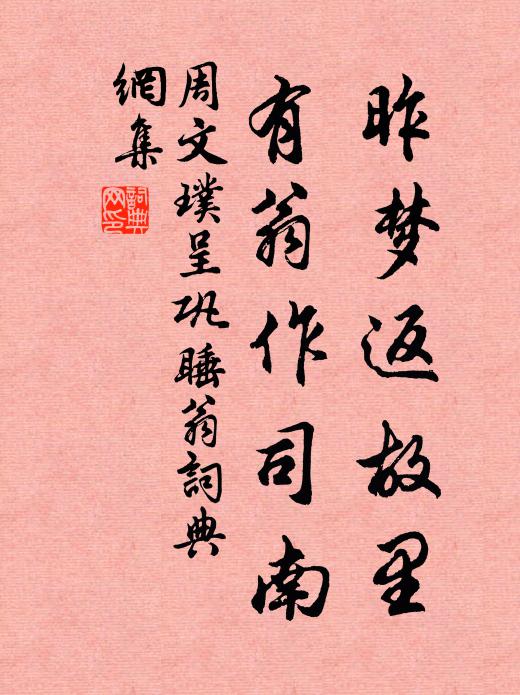 昨梦返故里
有翁作司南
周文璞呈巩睡翁詞典
網集
詞典
网印